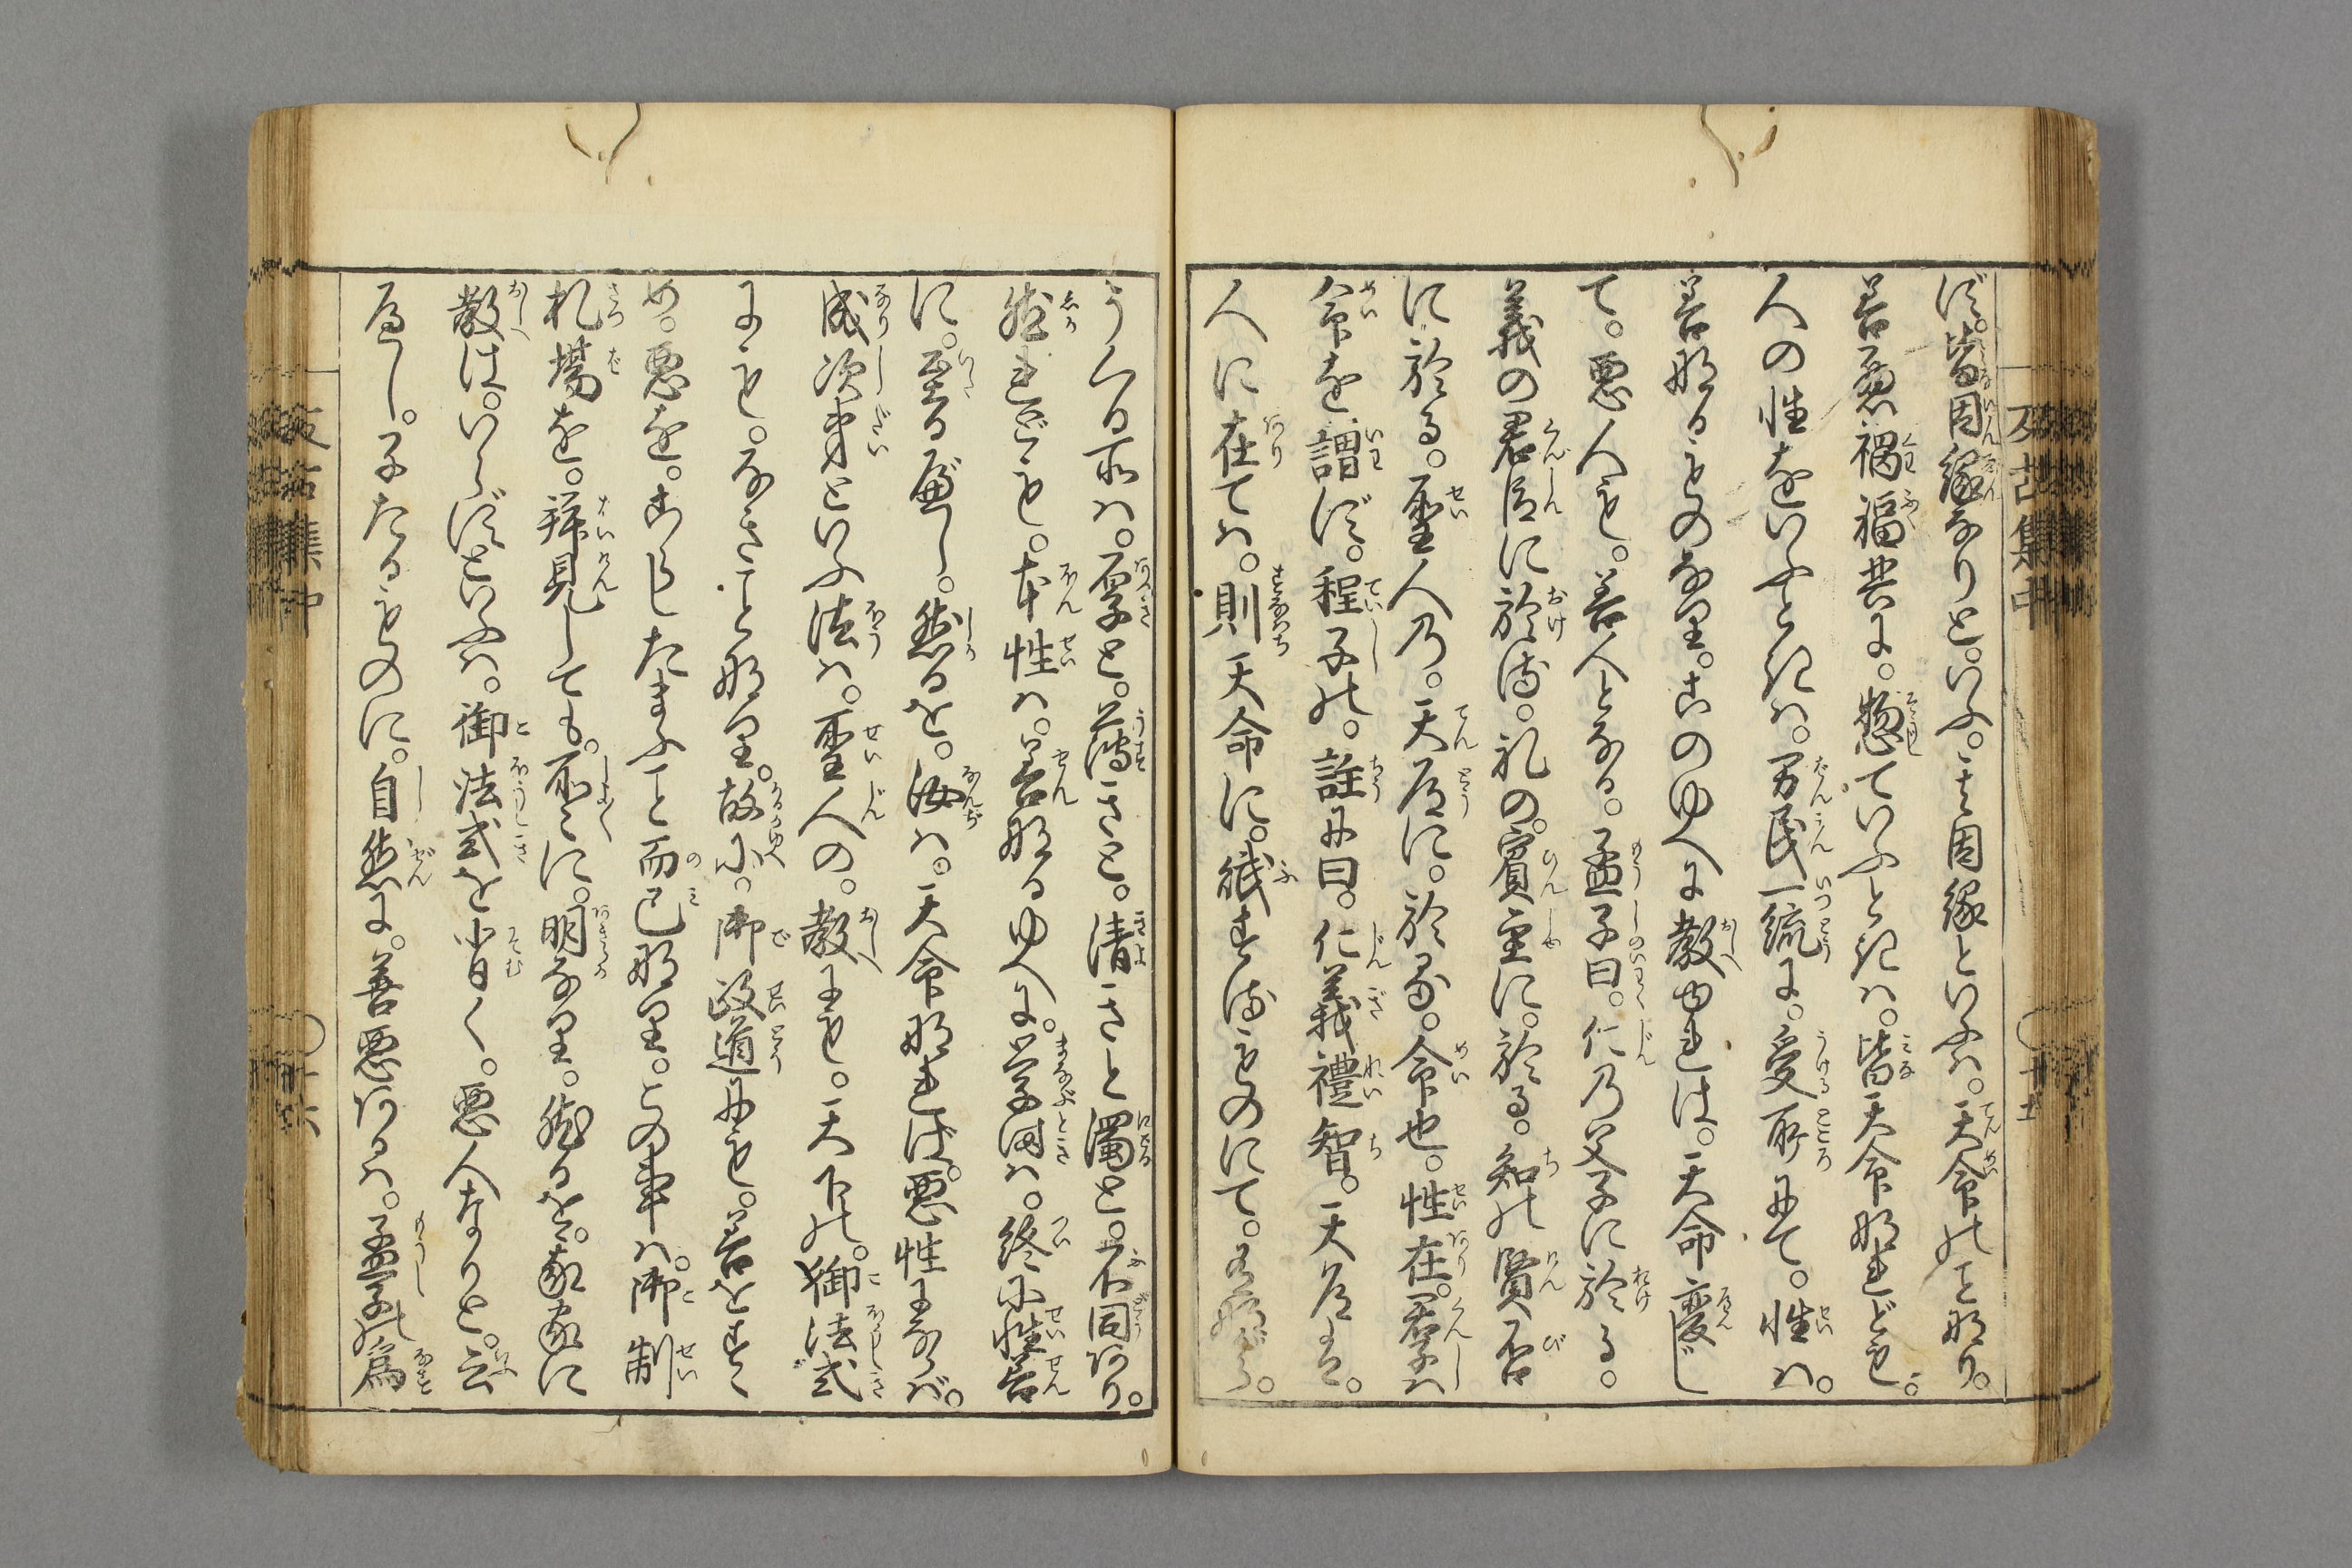 ば。皆因縁なりと。いふ。其因縁といふハ。天命のこと那り。
善悪禍福共に。惣ていふときハ。皆天命那れども。
人の性をいふときハ。万民一統に。受所にて。性ハ。
善那るものなり。このゆへに教ゆれは。天命変じ
て。悪人も。善人となる。孟子曰。仁乃父子に於る。
義の君臣に於る。礼の。賓主に。於る。知の賢否
に於る。聖人乃。天道に。於る。命也。性在。君子ハ
命を謂ず。程子の。註に曰。仁義禮智。天道は。
人に在てハ。則天命に。賦するものにて。
うくる所ハ。厚と。薄きと。清きと濁と。不同あり。
然れども。本性ハ。善那るゆへに。学問ハ。終に性善
に。至るべし。然るを。汝ハ。天命那れば。悪性にならバ。
成次第といふ法ハ。聖人の。教にも。天下の。御法式
にも。なきこと那り。故に。御政道にも。善をすゝ
め。悪を。こらしたまふこと而已那り。この事ハ。御制
札場を。拝見しても。所々に。明なり。然るを。我家に
教は。いらずといふハ。御法式を背く。悪人なりと。云
べし。子たるものに。自然に。善悪あるハ。孟子の為